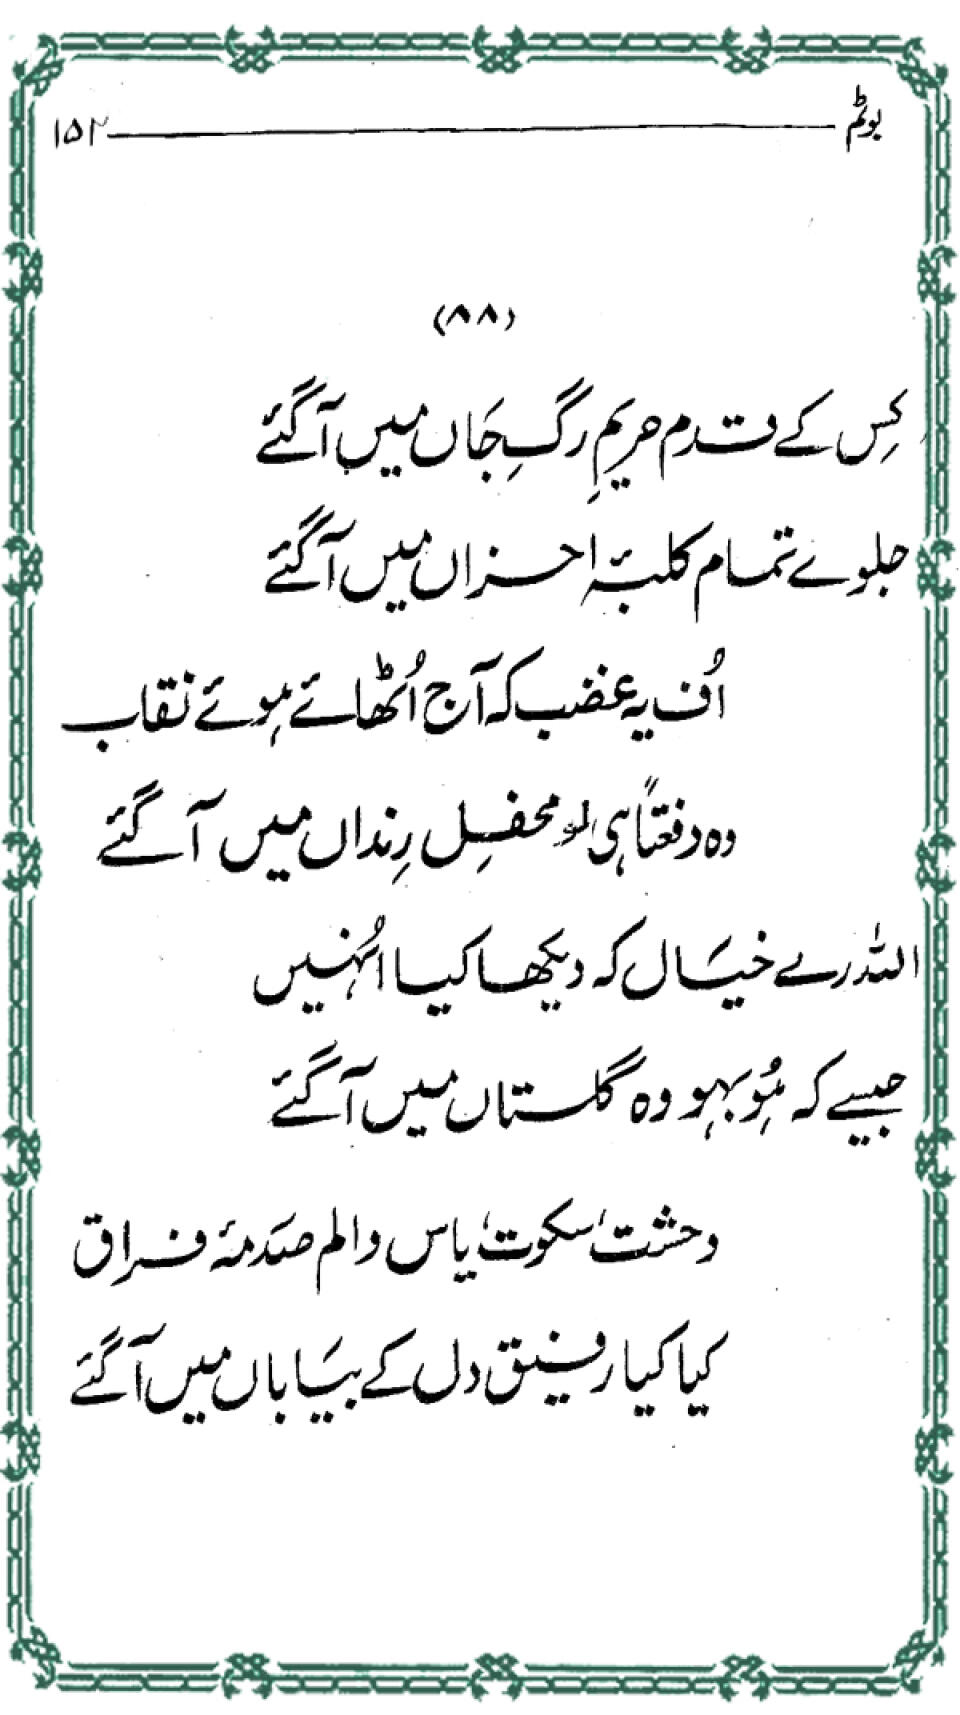 بوٹم ۱۵۲
(۸۸)
کِس کے قدم حریمِ رگِ جَاں میں آگئے
جلوے تمام کلبۂ احزاں میں آگئے
اُف یہ غضب کہ آج اُٹھائے ہوئے نقاب
وہ دفعتاً ہی لو محفلِ رِنداں میں آگئے
اللہ رے خیَال کہ دیکھا کیا اُنہیں
جیسے کہ ہُو بہو وہ گلستاں میں آگئے
وحشت، سکوت، یاس و الم صَدمۂ فراق
کیا کیا رفیق دل کے بیَاباں میں آگئے